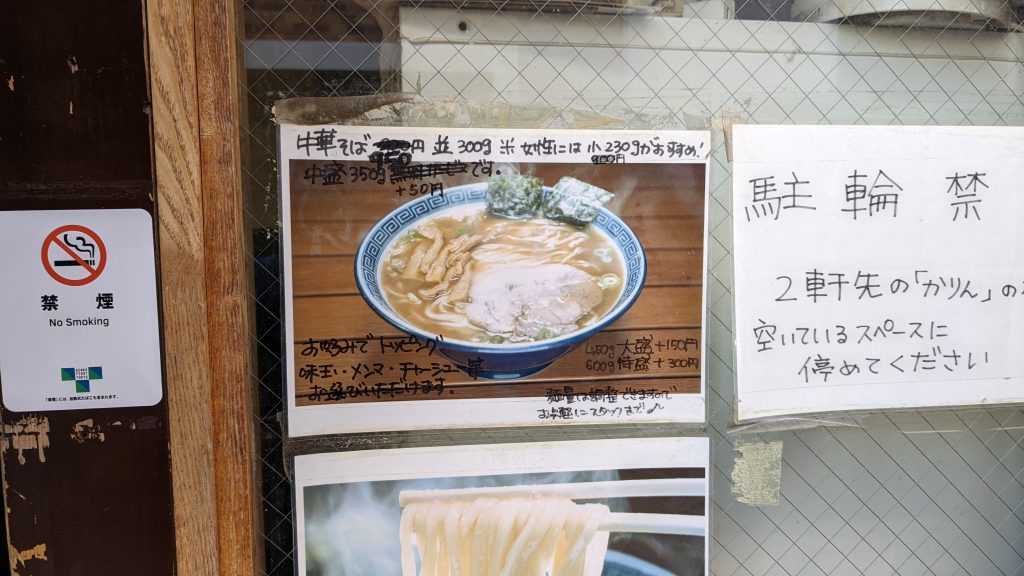 禁煙
No Smoking
「禁煙」には、加熱式たばこも含まれます。
中華そば 円 並 300g ※ 女性には小 230gがおすすめ!
900円
中盛 350g です。
+50円
お好みでトッピング
味玉・メンマ・チャーシュー等
お選びいただけます。
480g 大盛 +150円
600g 特盛 +300円
麺量は調整できますので
お気軽にスタッフまで
駐輪禁
2軒先の「かりん」の
空いているスペースに
停めてください